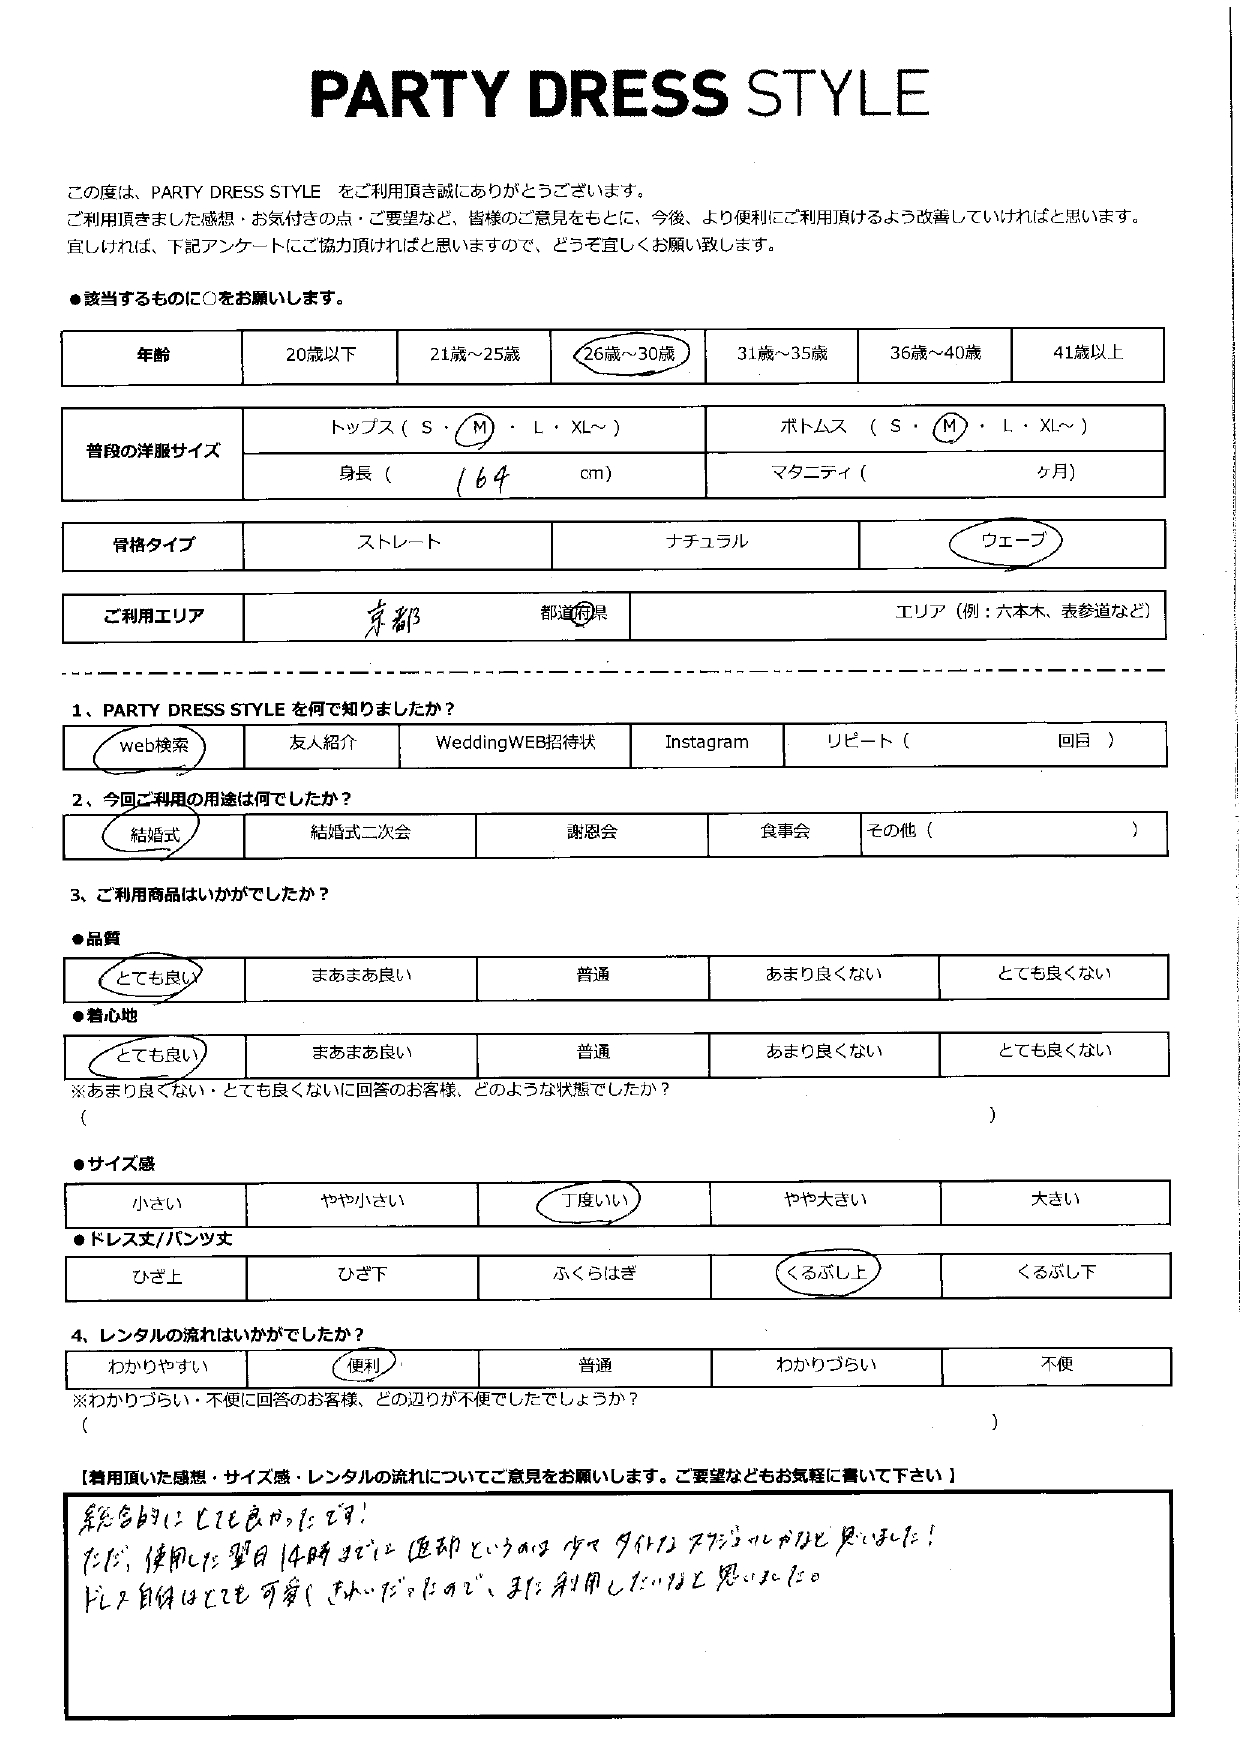 PARTY DRESS STYLE
この度は、PARTY DRESS STYLE　をご利用頂き誠にありがとうございます。
ご利用頂きました感想・お気付きの点・ご要望など、皆様のご意見をもとに、今後、より便利にご利用頂けるよう改善していければと思います。
宜しければ、下記アンケートにご協力頂ければと思いますので、どうぞ宜しくお願い致します。
●該当するものに○をお願いします。
年齢 20歳以下 21歳～25歳 26歳～30歳 31歳～35歳 36歳～40歳 41歳以上
普段の洋服サイズ トップス ( S ・ M ・ L ・ XL～ ) ボトムス ( S ・ M ・ L ・ XL～ )
身長 ( 164 cm) マタニティ ( ヶ月)
骨格タイプ ストレート ナチュラル ウェーブ
ご利用エリア 京都 都道府県 エリア（例：六本木、表参道など）
1、PARTY DRESS STYLE を何で知りましたか？
web検索 友人紹介 WeddingWEB招待状 Instagram リピート ( 回目 )
2、今回ご利用の用途は何でしたか？
結婚式 結婚式二次会 謝恩会 食事会 その他 ( )
3、ご利用商品はいかがでしたか？
●品質
とても良い まあまあ良い 普通 あまり良くない とても良くない
●着心地
とても良い まあまあ良い 普通 あまり良くない とても良くない
※あまり良くない・とても良くないに回答のお客様、どのような状態でしたか？
( )
●サイズ感
小さい やや小さい 丁度いい やや大きい 大きい
●ドレス丈/パンツ丈
ひざ上 ひざ下 ふくらはぎ くるぶし上 くるぶし下
4、レンタルの流れはいかがでしたか？
わかりやすい 便利 普通 わかりづらい 不便
※わかりづらい・不便に回答のお客様、どの辺りが不便でしたでしょうか？
( )
【着用頂いた感想・サイズ感・レンタルの流れについてご意見をお願いします。ご要望などもお気軽に書いて下さい】
総合的にとても良かったです！
ただ、使用した翌日14時までに返却というのは少々タイトなスケジュールかなと思いました！
ドレス自体はとても可愛くきれいだったので、また利用したいなと思いました。